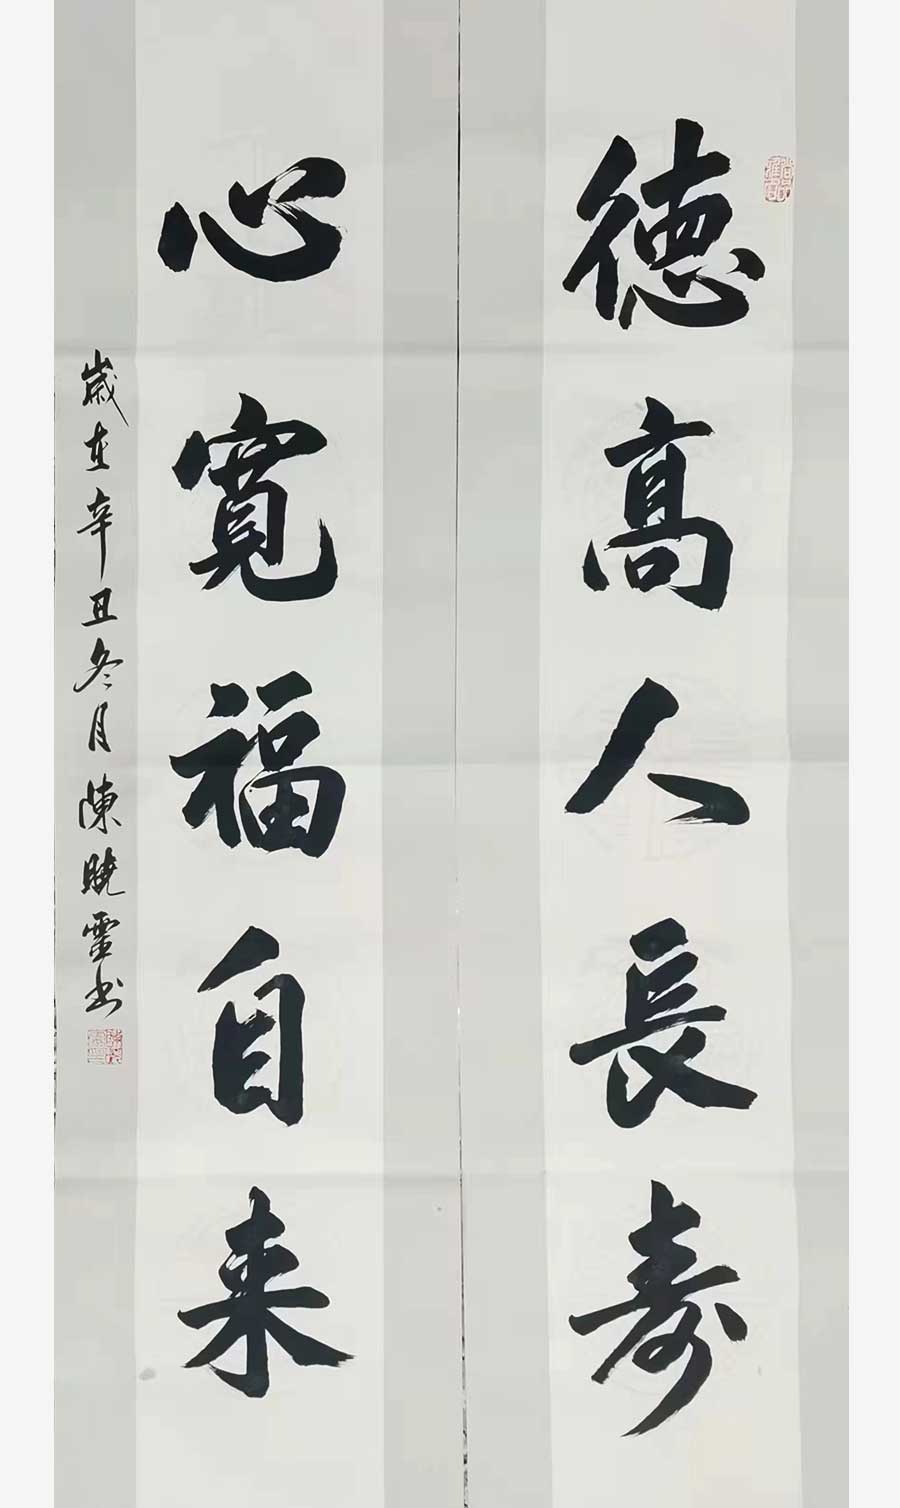 德高人長寿
心寬福自来
歲在辛丑冬月陳曉雪书